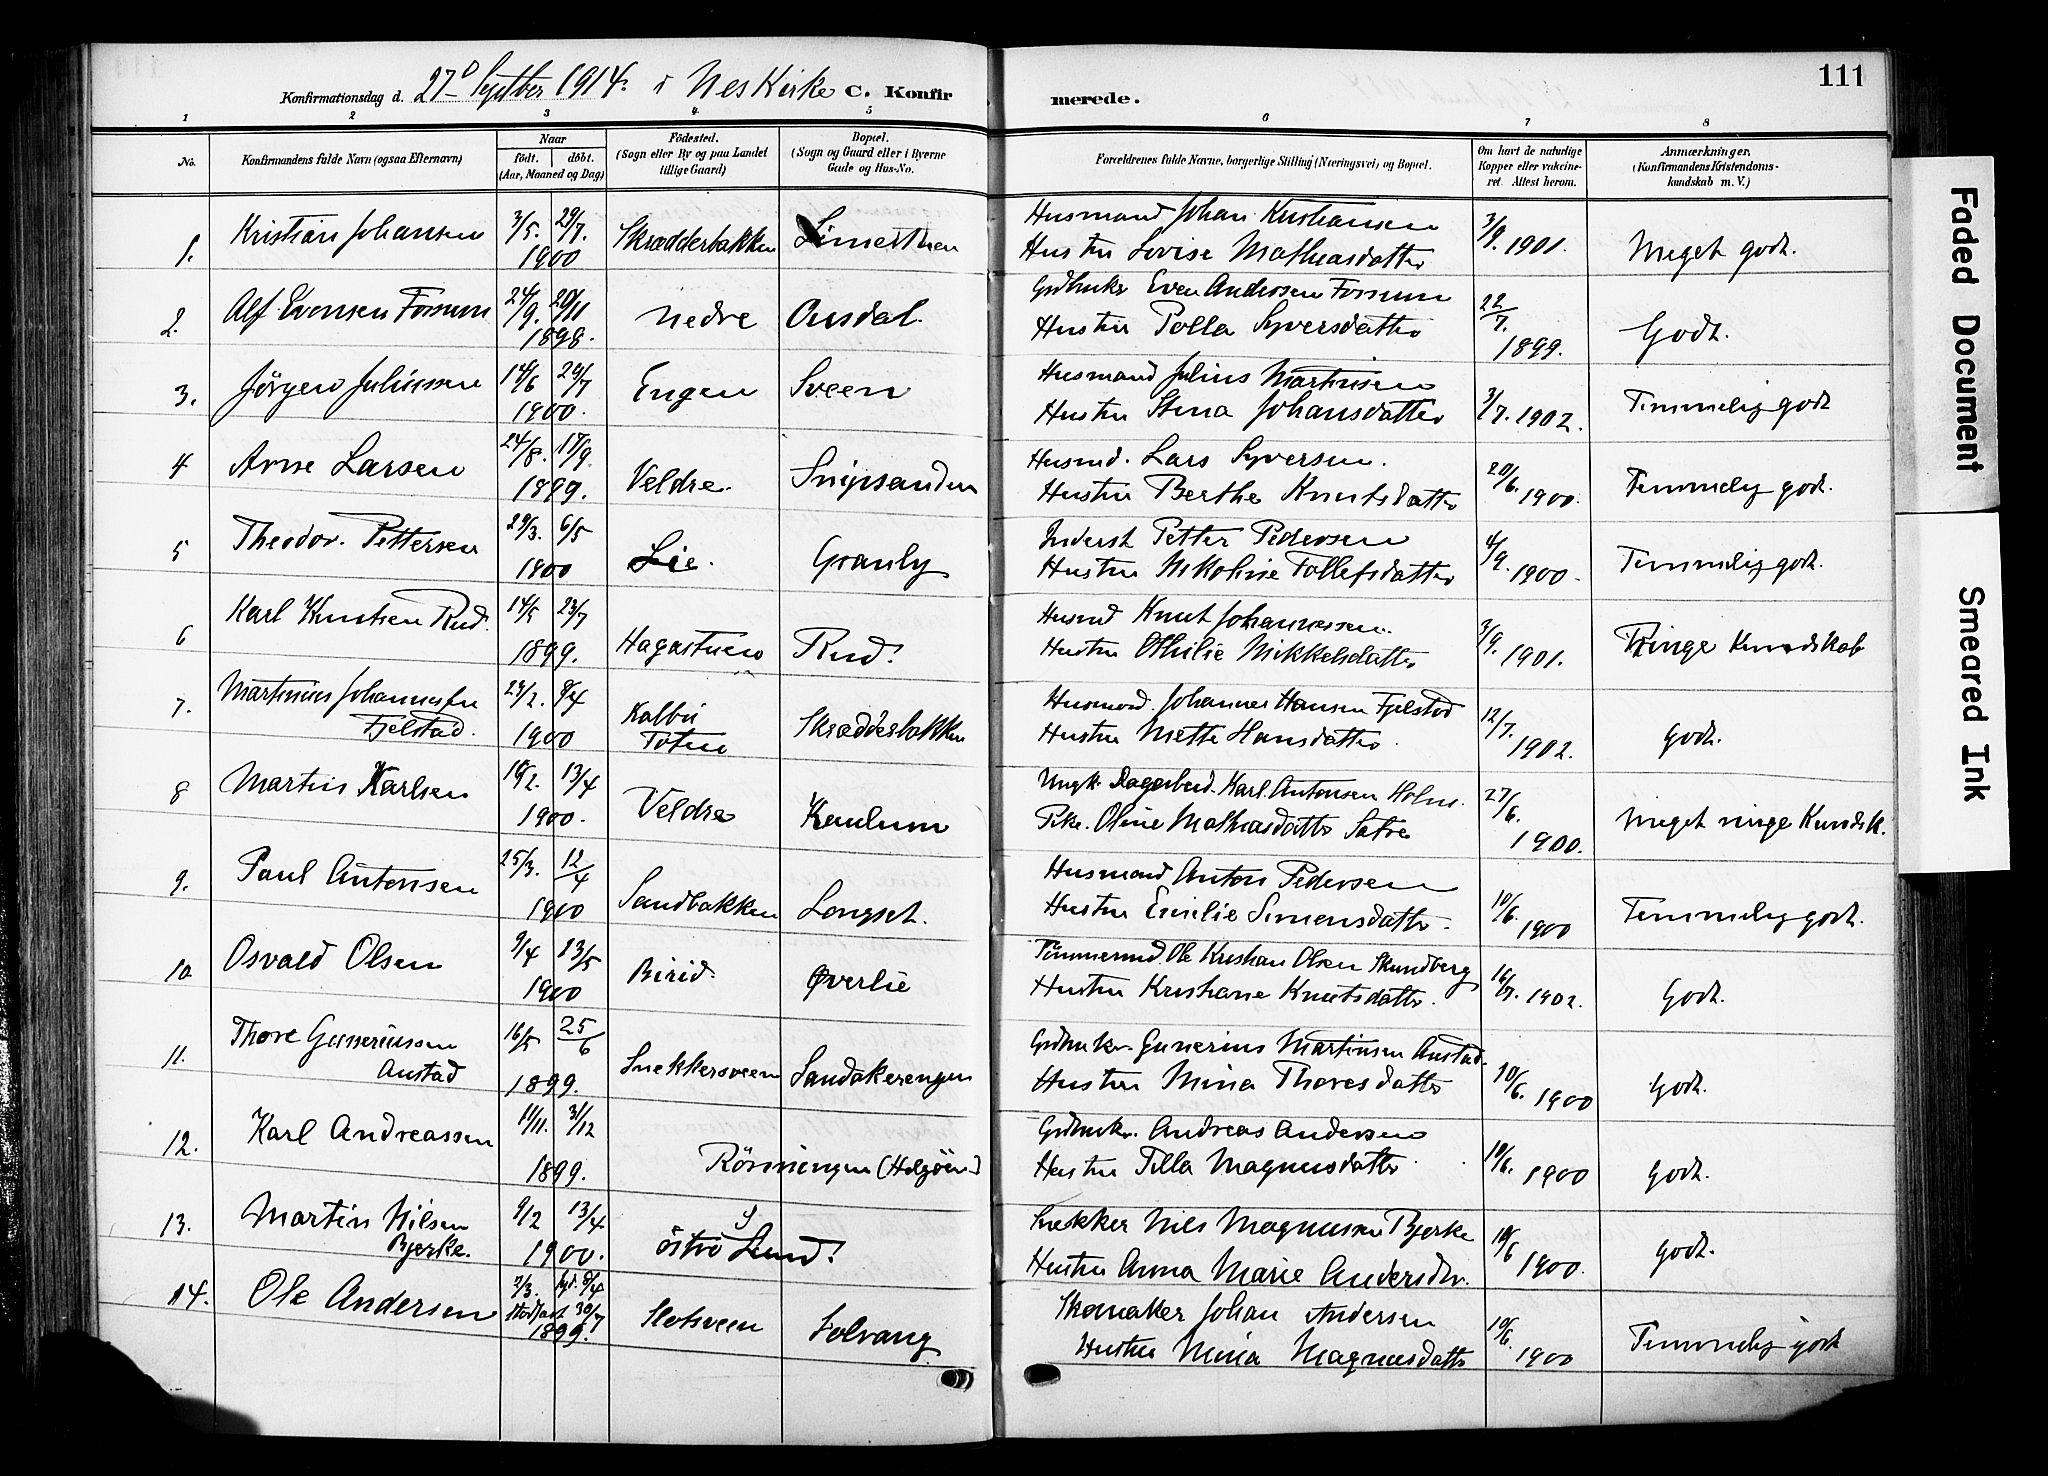 111
Konfirmationsdag d. 27de Septber 1914. i Nes Kirke C. Konfir merede.
1 2 3 4 5 6 7 8
No. Konfirmandens fulde Navn (ogsaa Efternavn) Naar födt. döbt. (Aar, Maaned og Dag) Födested. (Sogn eller By og paa Landet tillige Gaard) Bopæl. (Sogn og Gaard eller i Byerne Gade og Hus-No. Forældrenes fulde Navne, borgerlige Stilling (Næringsvei) og Bopæl. Om havt de naturlige Kopper eller vakcineret. Attest herom. Anmærkninger. (Konfirmandens Kristendomskundskab m. V.)
1. Kristian Johansen 3/5. 29/7. 1900 Skrædderbakken
Husmand Johan Kristiansen
Hustru Lovise Mathiasdatter 3/9. 1901. Meget godt.
2. Alf Evensen Fossum 24/9. 20/11 1898. Nedre Ausdal.
Gdbruker Even Andersen Fossum
Hustru Polla Syversdatter 22/7. 1899. Godt.
3. Jörgen Juliussen 14/6 29/7 1900. Engen Sveen
Husmand Julius Martinsen
Hustru Stina Johansdatter 3/7. 1902. Temmelig godt
4 Arne Larsen 24/8. 17/9. 1899. Veldre. Snipsanden
Husmd. Lars Syversen.
Hustru Berthe Knutsdatter 20/6. 1900. Temmelig godt.
5 Theodor Pettersen 29/3. 6/5 1900 Lie. Granly
Inderst Petter Pedersen
Hustru Nikoline Tollefsdatter 4/9. 1900. Temmelig godt.
6 Karl Knutsen Rud. 14/5 23/7 1899. Hagastuen Rud.
Husmd Knut Johannessen.
Hustru Othilie Mikkelsdatter 3/9. 1901. Ringe Kundskab
7. Martinius Johannesen Fjelstad. 23/2. 8/4 1900 Kolbu Toten Skrædderbakken
Husmand. Johannes Hansen Fjelstad
Hustru Mette Hansdatter. 12/7. 1902. Godt.
8 Martin Karlsen 18/2. 13/4 1900. Veldre Kaulum
Ungk. Dagarbeid. Karl Antonsen Holm.
Pike. Oline Mathiasdatter Sætre 27/6. 1900. Meget ringe Kundsk.
9. Paul Antonsen 25/3. 12/4 1900 Sandbakken Longset.
Husmand Anton Pedersen
Hustru Emilie Simensdatter. 10/6. 1900 Temmelig godt.
10. Osvald Olsen 9/4 13/5 1900 Birid. Øverlie
Tømmermd. Ole Kristian Olsen Skundberg
Hustru Kristiane Knutsdatter. 16/7. 1902. Godt.
11. Thore Gunneriussen Austad 16/5 25/6 1899. Snekkersveen Sandakerengen
Gdbruker. Gunerius Martinsen Austad.
Hustru Mina Thoresdatter 10/6. 1900 Godt.
12. Karl Andreassen 11/11. 31/12 1899. Rönningen (Helgöen)
Gdbruker. Andreas Andersen
Hustru Tilla Magnusdatter 10/6. 1900 Godt.
13. Martin Nilsen Bjerke. 9/2 13/4 1900. östre Lund.
Snekker Nils Magnussen Bjerke
Hustru Anna Marie Andersdtr. 10/6 1900. Godt.
14. Ole Andersen 2/3. 8/4 Stadfæst 30/7 1899. Slotsveen Solvang
Skomaker Johan Andersen
Hustru Mina Magnusdatter 10/6. 1900 Temmelig godt
Faded Document
Smeared Ink